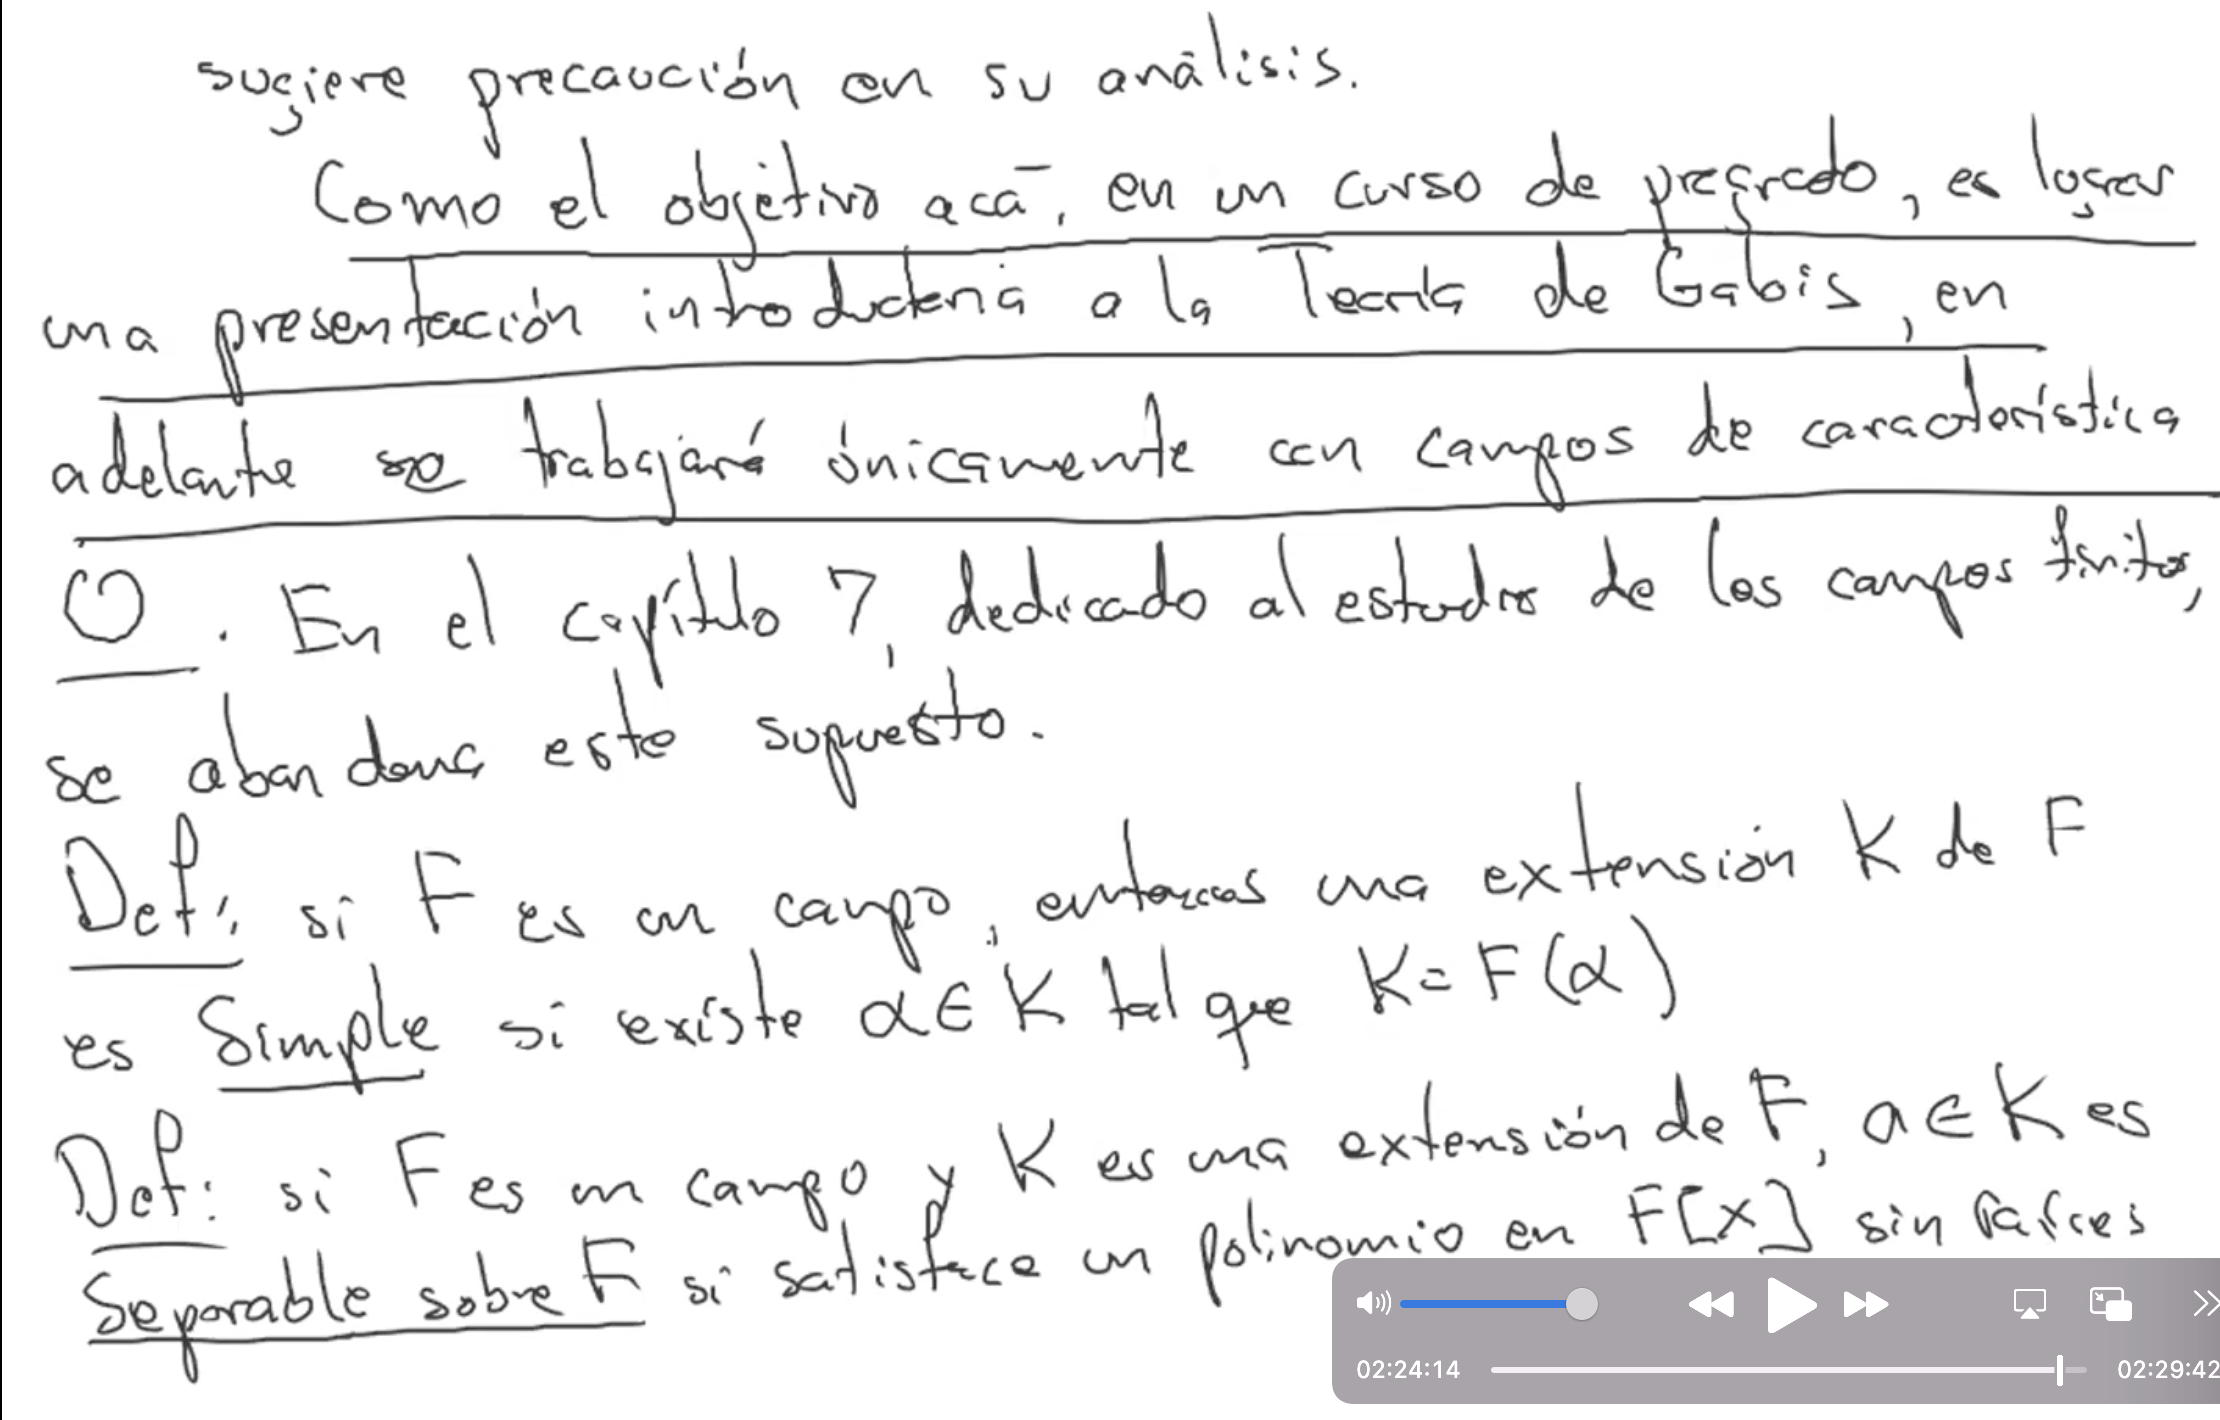 sugiere precaución en su análisis.
Como el objetivo acá, en un curso de pregrado, es lograr
una presentación introductoria a la Teoría de Galois, en
adelante se trabajará únicamente con campos de característica
0. En el capítulo 7, dedicado al estudio de los campos finitos,
se abandona este supuesto.
Def: si F es un campo, entonces una extensión K de F
es Simple si existe α ∈ K tal que K = F(α)
Def: si F es un campo y K es una extensión de F, a ∈ K es
Separable sobre F si satisface un polinomio en F[x] sin raíces
02:24:14
02:29:42